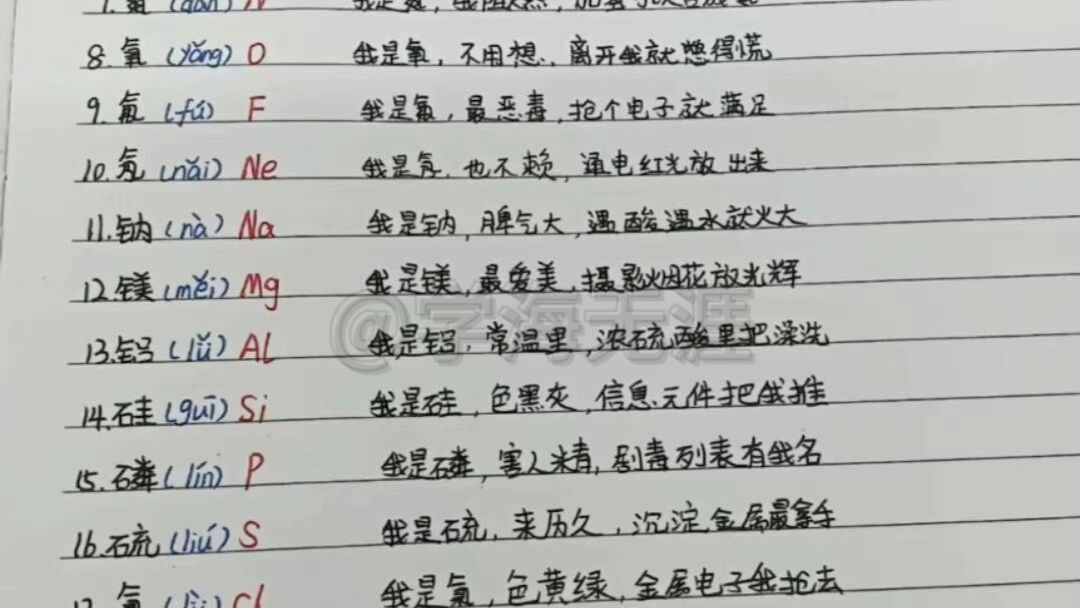 7. 氮 (dàn) N 我是氮,我阻燃,加氢可以合成氨
8. 氧 (yǎng) O 我是氧,不用想,离开我就憋得慌
9. 氟 (fú) F 我是氟,最恶毒,抢个电子就满足
10. 氖 (nǎi) Ne 我是氖,也不赖,通电红光放出来
11. 钠 (nà) Na 我是钠,脾气大,遇酸遇水就火大
12. 镁 (měi) Mg 我是镁,最爱美,摄影烟花放光辉
@学海无涯
13. 铝 (lǚ) Al 我是铝,常温里,浓硫酸里把澡洗
14. 硅 (guī) Si 我是硅,色黑灰,信息元件把我推
15. 磷 (lín) P 我是磷,害人精,剧毒列表有我名
16. 硫 (liú) S 我是硫,来历久,沉淀金属最拿手
17. 氯 (lǜ) Cl 我是氯,色黄绿,金属电子我抢去